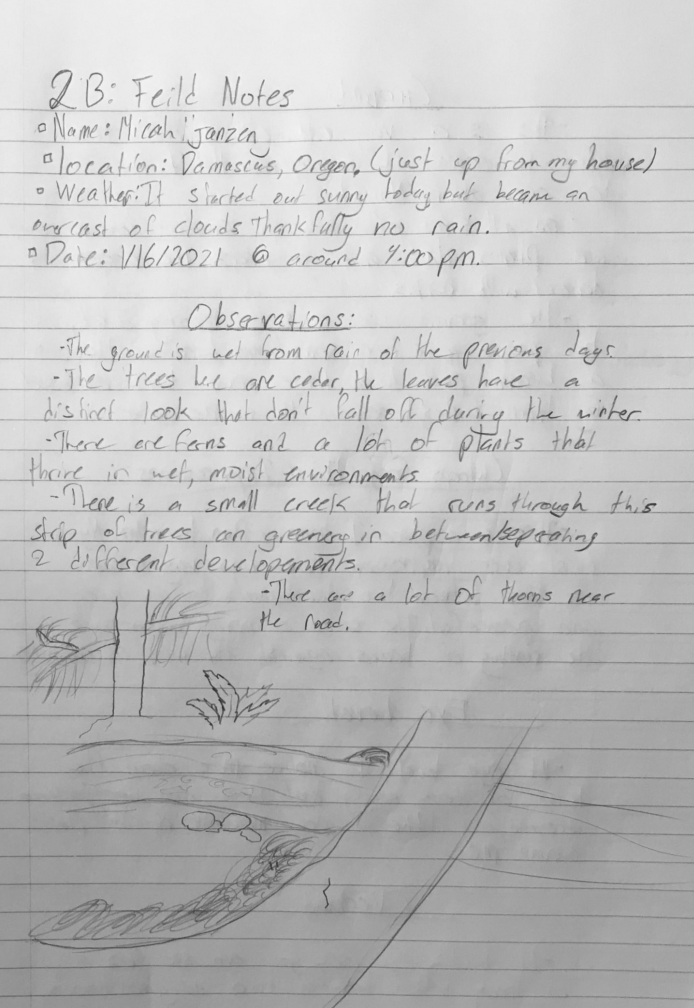 2B: Feild Notes
Name: Micah Janzen
location: Damascus, Oregon, (just up from my house)
Weather: It started out sunny today but became an
overcast of clouds Thankfully no rain.
Date: 1/16/2021 @ around 4:00 pm.
Observations:
-The ground is wet from rain of the previous days.
-The trees are cedar, the leaves have a
distinct look that don't fall off during the winter.
-There are ferns and a lot of plants that
thrive in wet, moist environments.
-There is a small creek that runs through this
strip of trees greenery in between/seperating
2 different developements.
-There are a lot of thorns near
the road.